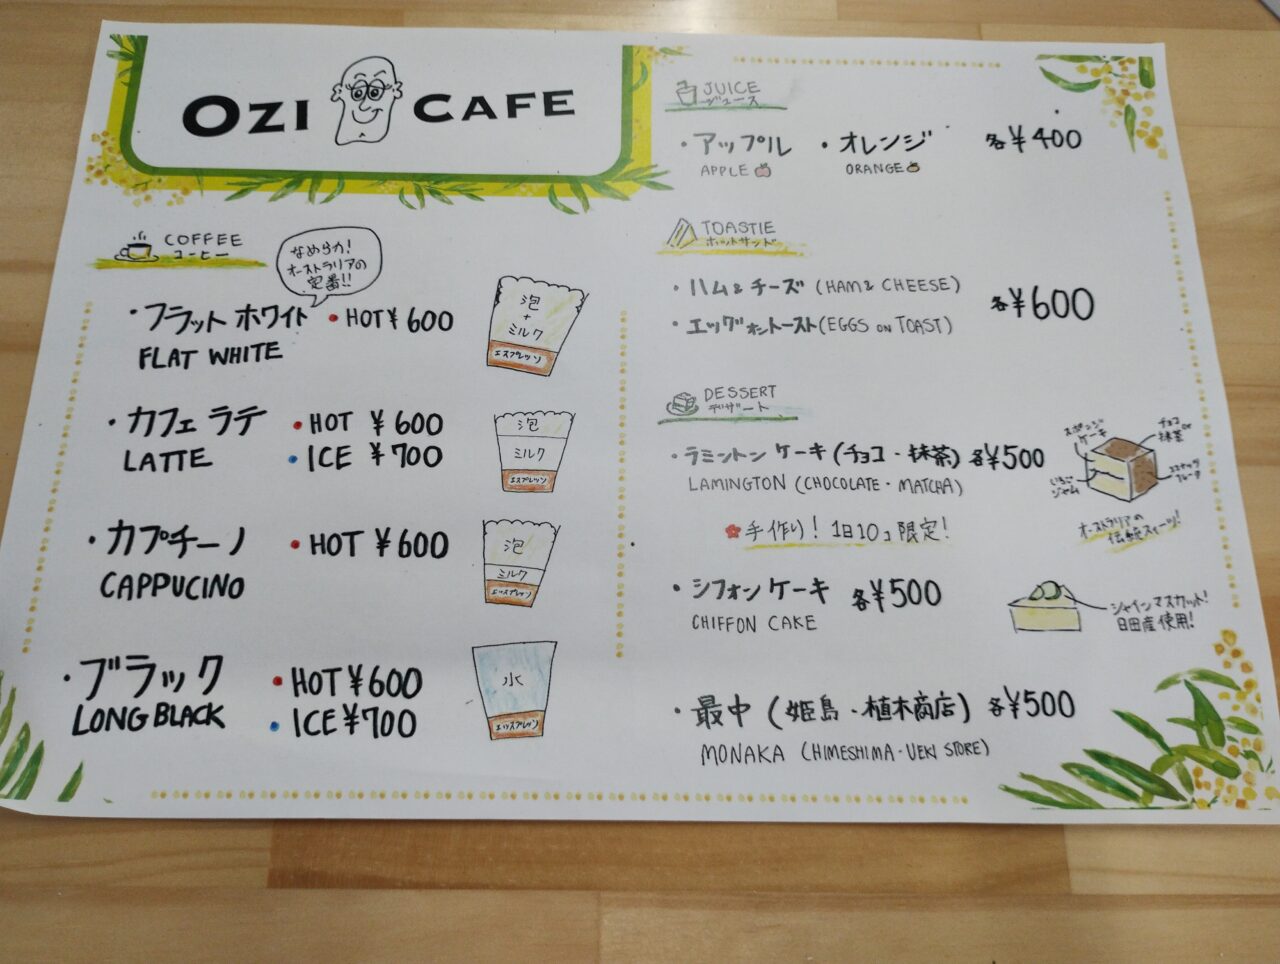 OZI CAFE
COFFEE
コーヒー
なめらか!
オーストラリアの
定番!!
・フラット ホワイト ・HOT ¥600
FLAT WHITE
泡
+
ミルク
エスプレッソ
・カフェ ラテ ・HOT ¥600
LATTE ・ICE ¥700
泡
ミルク
エスプレッソ
・カプチーノ ・HOT ¥600
CAPPUCINO
泡
ミルク
エスプレッソ
・ブラック ・HOT ¥600
LONG BLACK ・ICE ¥700
水
エスプレッソ
JUICE
ジュース
・アップル ・オレンジ 各¥400
APPLE ORANGE
TOASTIE
ホットサンド
・ハム&チーズ (HAM & CHEESE)
・エッグオントースト (EGGS ON TOAST)
各¥600
DESSERT
デザート
・ラミントン ケーキ (チョコ・抹茶) 各¥500
LAMINGTON (CHOCOLATE・MATCHA)
手作り! 1日10コ限定!
スポンジ
ケーキ
チョコ or
抹茶
いちご
ジャム
ココナッツ
フレーク
オーストラリアの
伝統スイーツ!
・シフォン ケーキ 各¥500
CHIFFON CAKE
シャインマスカット!
日田産使用!
・最中 (姫島・植木商店) 各¥500
MONAKA (HIMESHIMA・UEKI STORE)